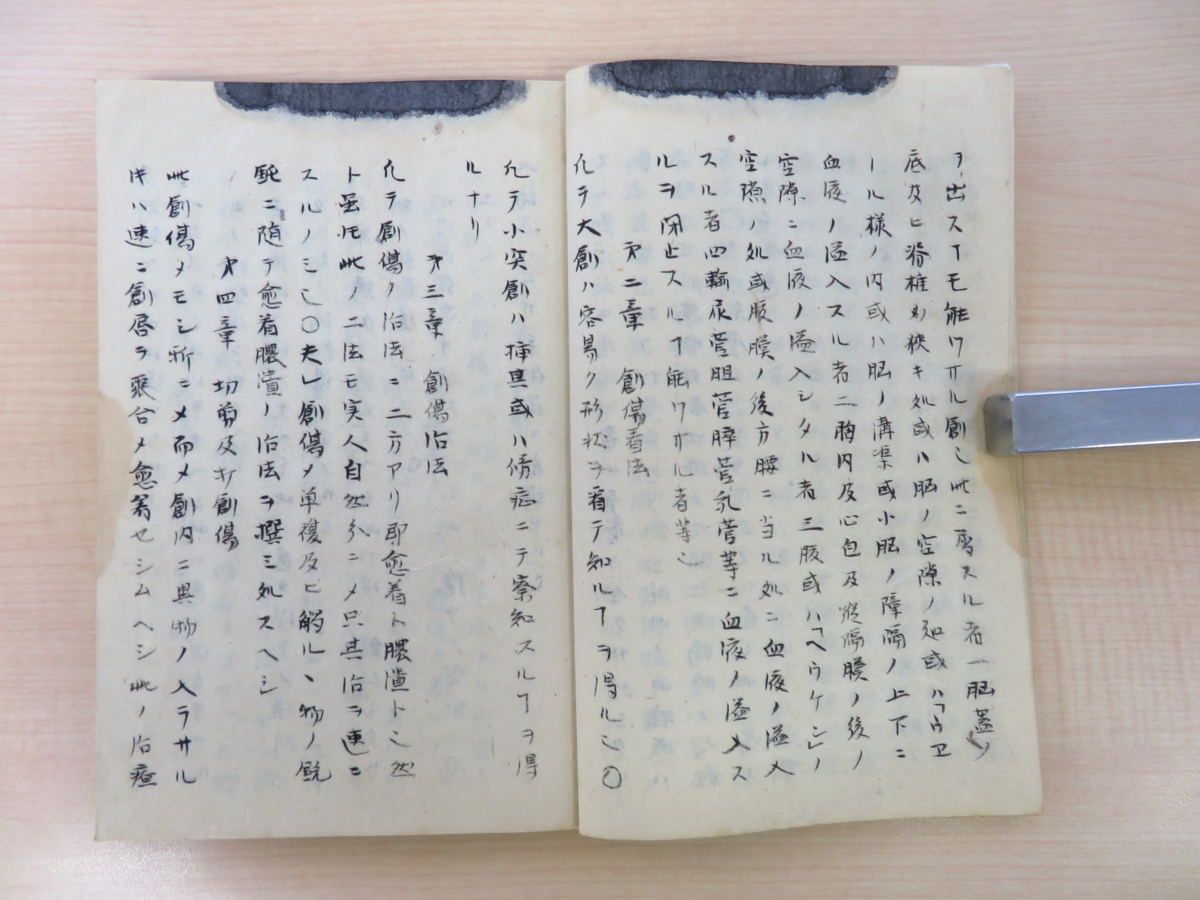 ヲ出スヿモ能ワサル創也此ニ属スル者一脳蓋ノ
底及ヒ脊椎ノ狭キ処或ハ脳ノ空隙ノ処或ハ「ウヱ
ール様ノ内或ハ脳ノ溝渠或小脳ノ障隔ノ上下ニ
血液ノ溢入スル者二胸内及心包及縦隔膜ノ後ノ
空隙ニ血液ノ溢入シタル者三腹或ハ「ヘウケン」ノ
空隙ノ処或腹膜ノ後方腰ニ当ル処ニ血液ノ溢入
スル者四輸尿管胆管膵管乳管等ニ血液ノ溢入ス
ルヲ閉止スルヿ能ワサル者等也
第二章 創傷看法
凢テ大創ハ容易ク形状ヲ看テ知ルヿヲ得ル也〇
凢テ小突創ハ挿具或ハ傍症ニテ察知スルヿヲ得
ルナリ
第三章 創傷治法
凢テ創傷ノ治法ニ二方アリ即愈着ト膿潰ト也然
ト虽𪜈此ノ二法モ実人自然分ニメ只其治ヲ速ニ
スルノミ也〇夫レ創傷メ単復及ヒ觸ルヽ物ノ鋭
鈍ニ随テ愈着膿潰ノ治法ヲ撰ミ処スヘシ
第四章 切剪及ヒ創傷
此創傷メモシ新ニメ而メ創内ニ異物ノ入ラサル
キハ速ニ創唇ヲ聚合メ愈着セシムヘシ此ノ治療